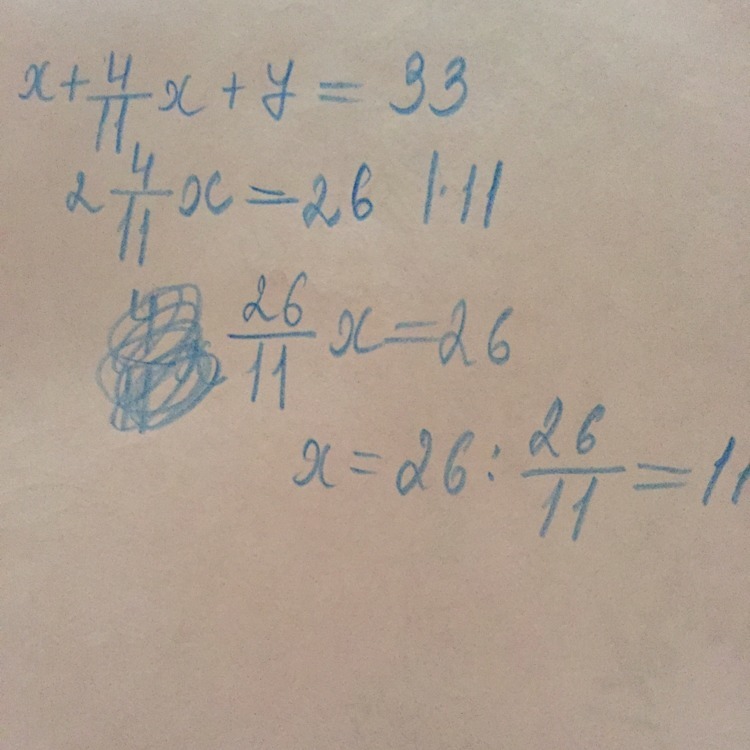 x + 4/11 x + y = 33
2 4/11 x = 26 |·11
26/11 x = 26
x = 26 : 26/11 = 11